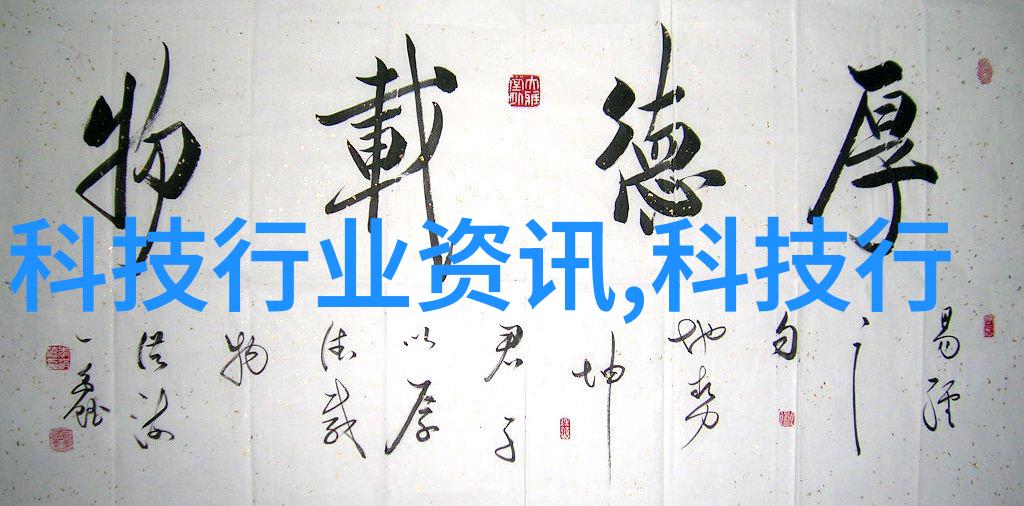 厚德載物
科技行业资讯,科技行
易經
之
句
地勢
坤
君子
以厚
德載
物